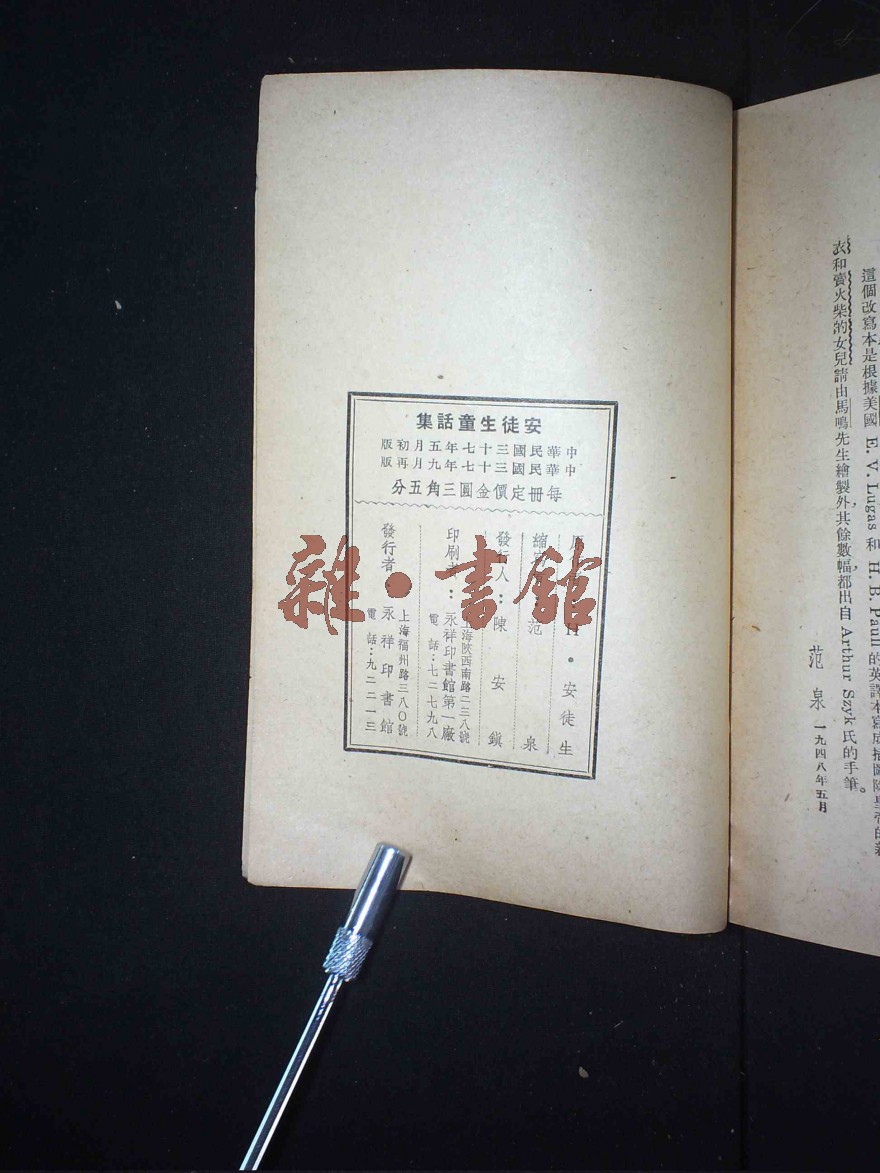 這個改寫本是根據美國 E. V. Lugas 和 H. B. Paull 的英譯本寫成
衣和賣火柴的女兒請由馬鳴先生繪製外，其餘數幅，都出自 Arthur Szyk 氏的手筆。
范泉 一九四八年五月
安徒生童話集
中華民國三十七年五月初版
中華民國三十七年九月再版
每冊定價金圓三角五分
安徒生
范泉
發行人：陳安鎮
上海陝西南路二三八號
永祥印書館第一廠
電話：七二七九八
發行者：
上海福州路三八〇號
永祥印書館
電話：九二二一三
雜·書館